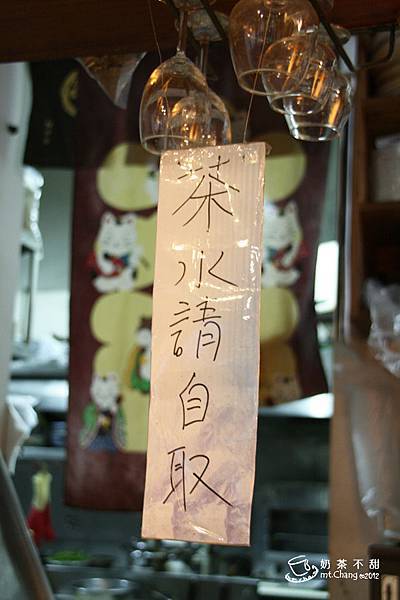 茶水請自取
奶茶不甜
mt.Chang©2012